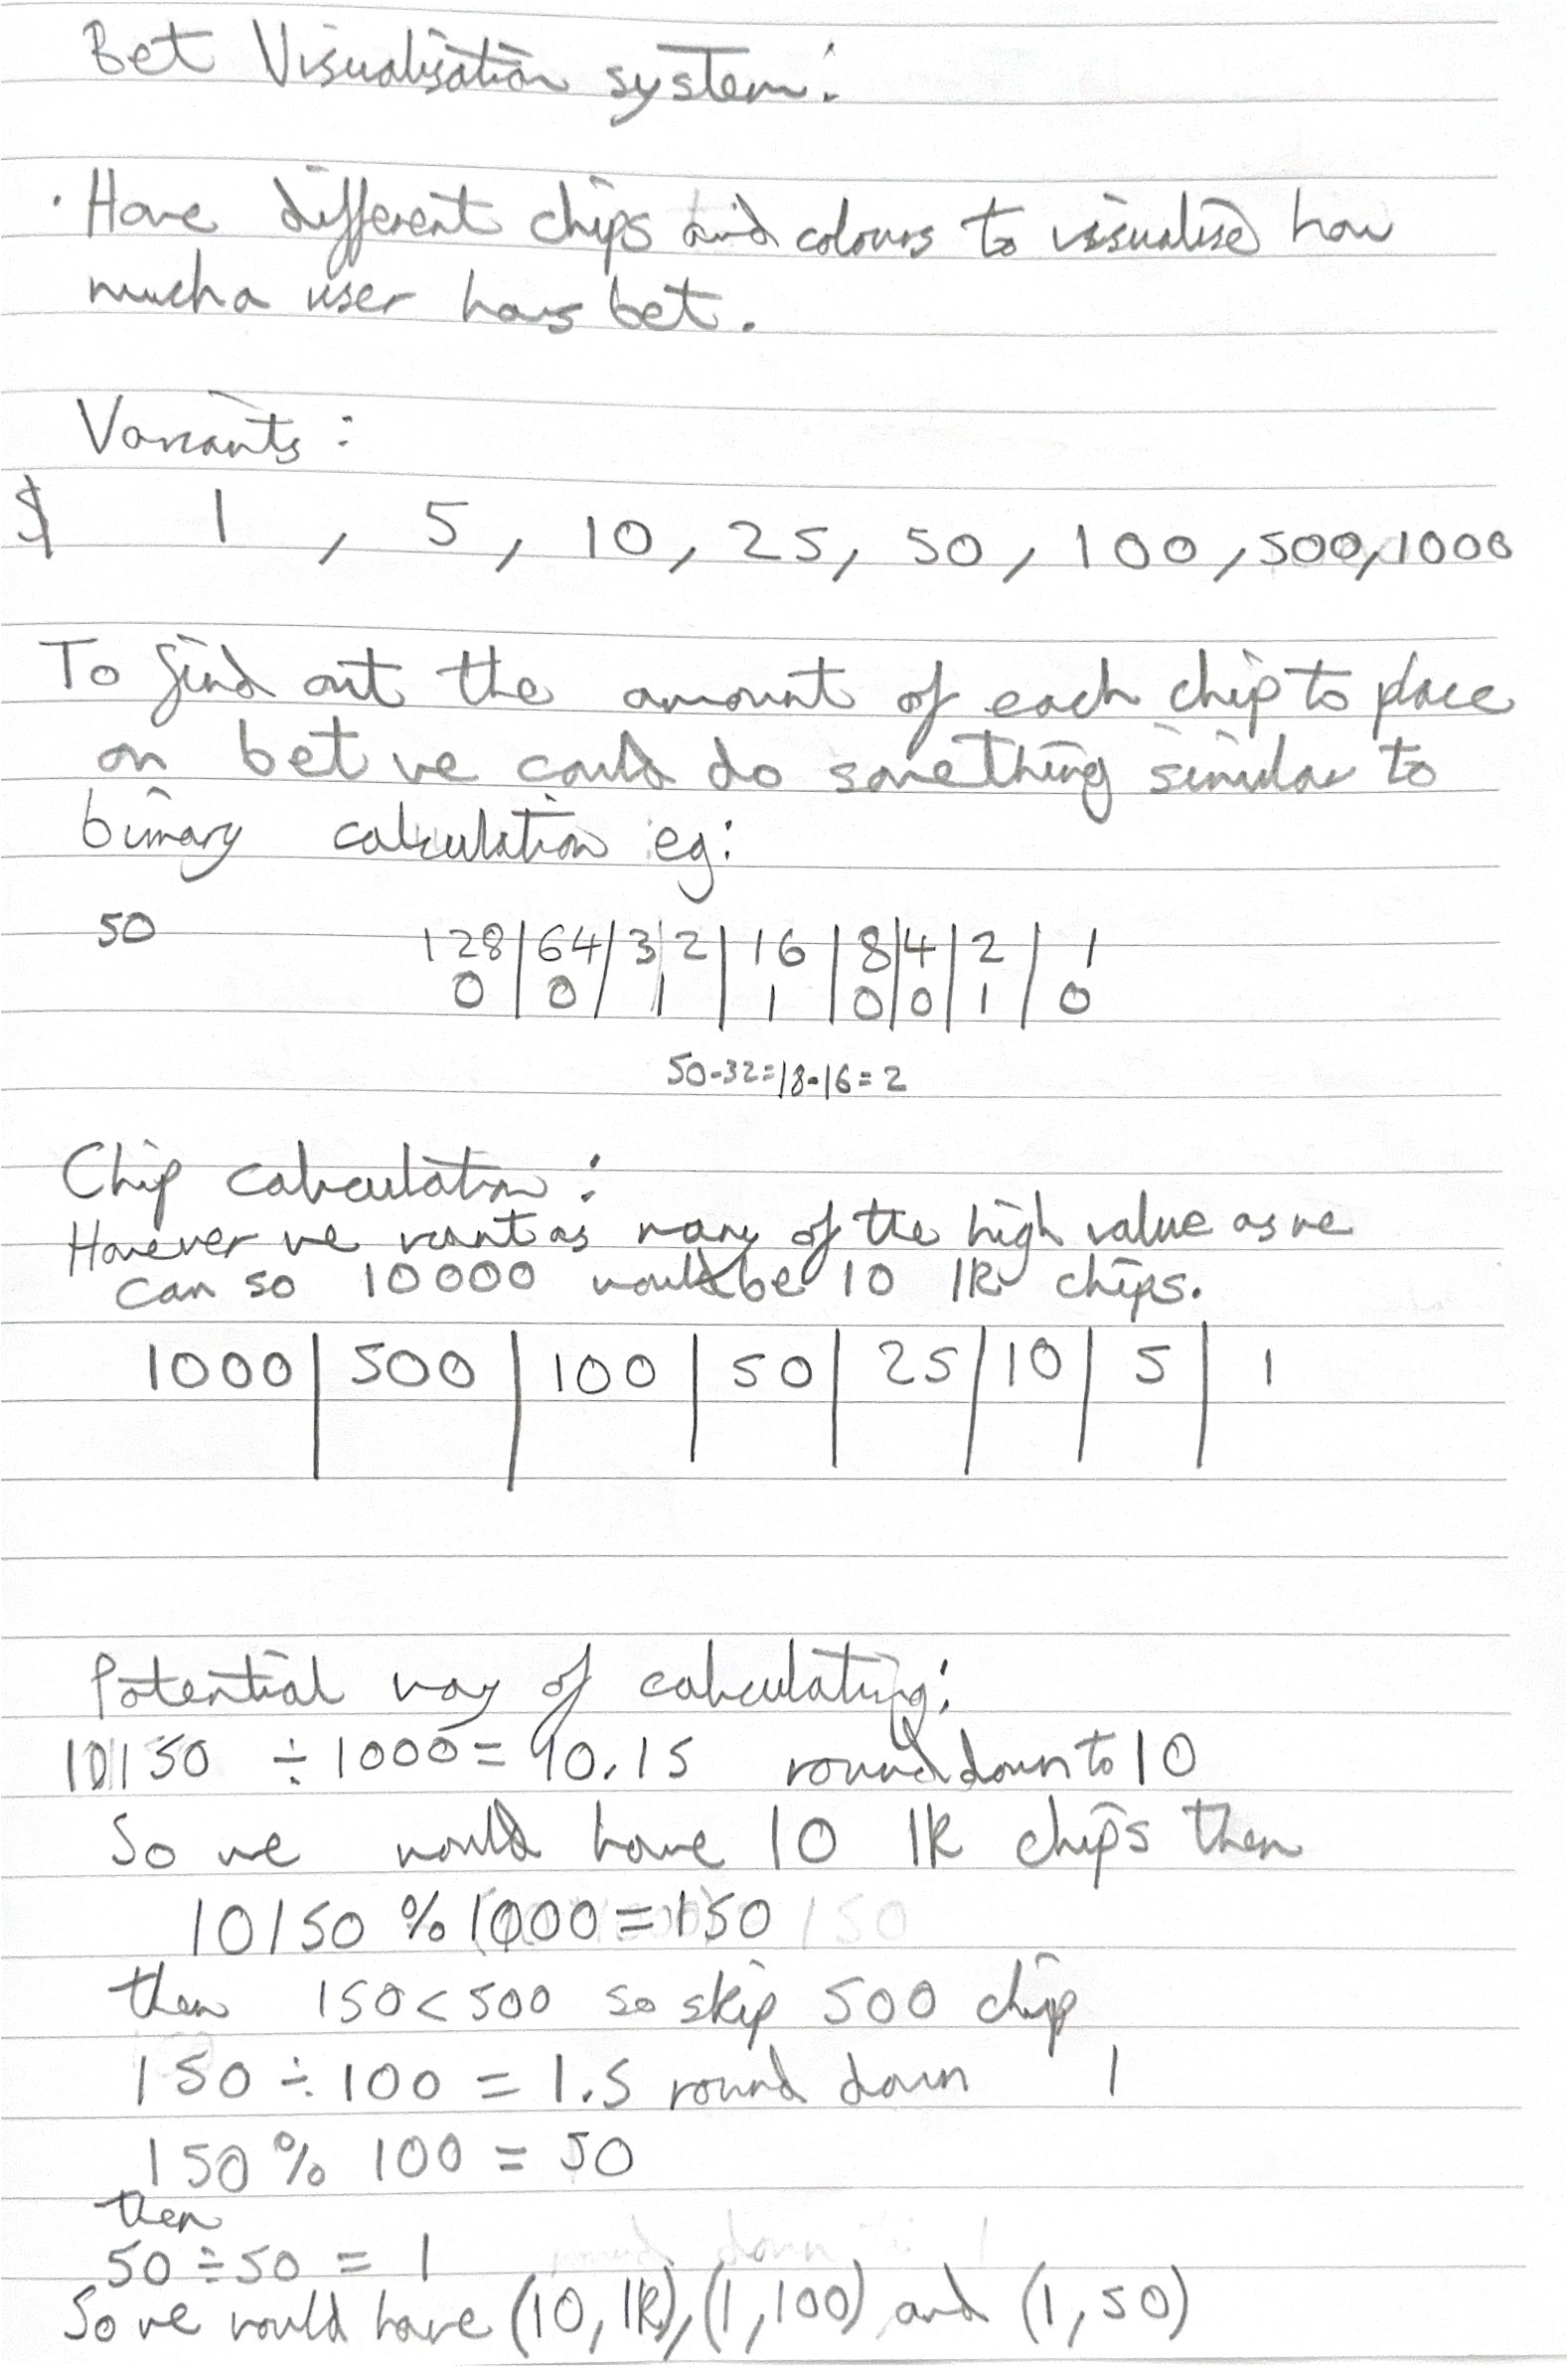 Bet Visualisation system:
· Have different chips and colours to visualise how
much a user has bet.
Variants:
$ 1, 5, 10, 25, 50, 100, 500, 1000
To find out the amount of each chip to place
on bet we could do something similar to
binary calculation eg:
50 128 | 64 | 32 | 16 | 8 | 4 | 2 | 1
0 | 0 | 1 | 1 | 0 | 0 | 1 | 0
50-32=18-16=2
Chip calculation:
However we want as many of the high value as we
can so 10000 would be 10 1K chips.
1000 | 500 | 100 | 50 | 25 | 10 | 5 | 1
Potential way of calculating:
10150 ÷ 1000 = 10.15 round down to 10
So we would have 10 1K chips then
10150 % 1000 = 150
then 150 < 500 so skip 500 chip
150 ÷ 100 = 1.5 round down 1
150 % 100 = 50
then
50 ÷ 50 = 1
So we would have (10, 1K), (1, 100) and (1, 50)